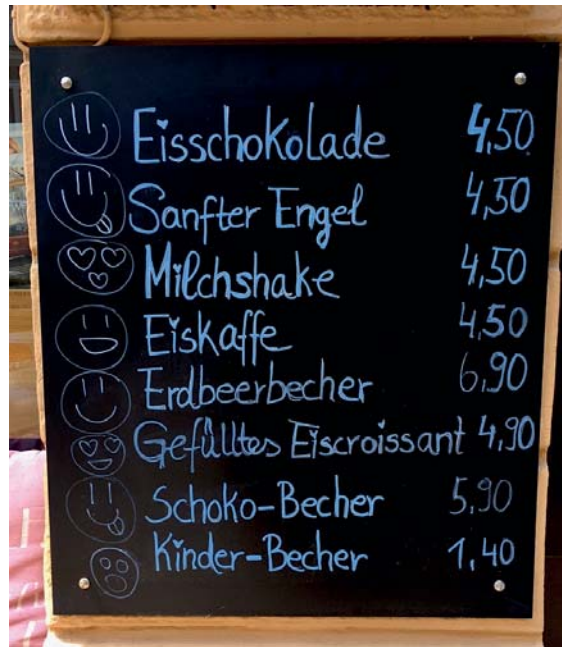 Eisschokolade 4,50
Sanfter Engel 4,50
Milchshake 4,50
Eiskaffe 4,50
Erdbeerbecher 6,90
Gefülltes Eiscroissant 4,90
Schoko-Becher 5,90
Kinder-Becher 1,40